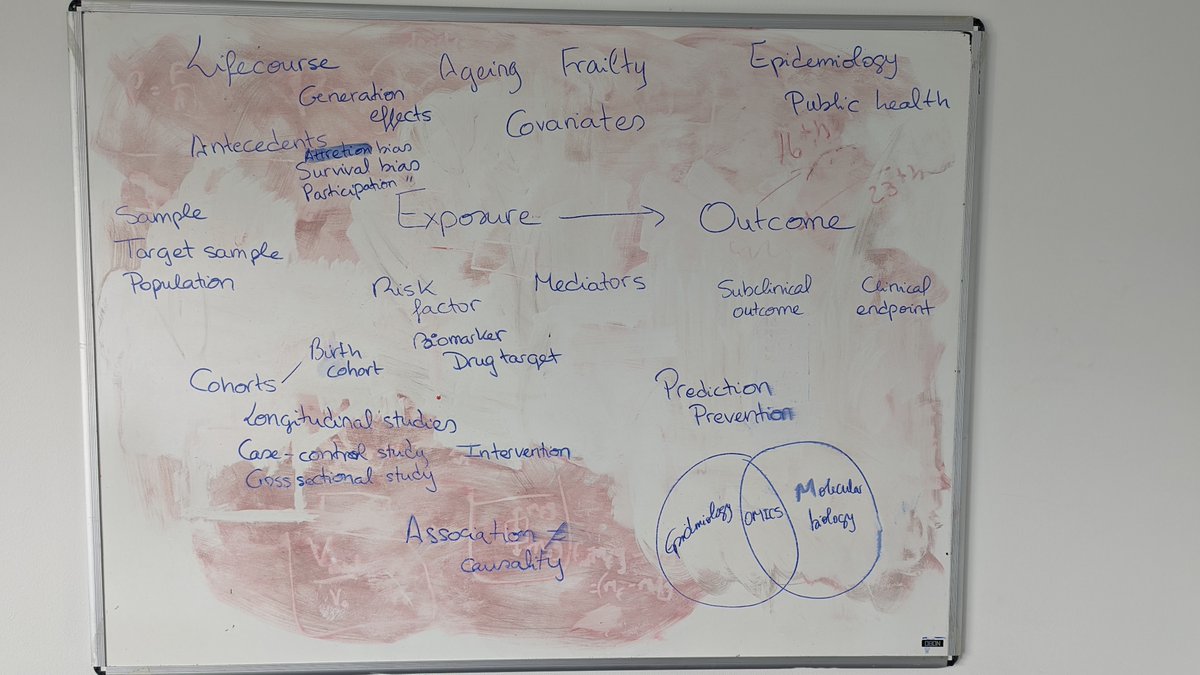 Lifecourse
Ageing
Frailty
Epidemiology
Generation
effects
Covariates
Public health
Antecedents
Attretion bias
Survival bias
Participation "
16th
23th
Sample
Target sample
Population
Exposure → Outcome
Risk
factor
Mediators
Subclinical
outcome
Clinical
endpoint
Biomarker
Drug target
Birth
cohort
Cohorts
Prediction
Prevention
Longitudinal studies
Case-control study
Intervention
Cross sectional study
Epidmiology
OMICS
Molecular
biology
Association ≠
causality